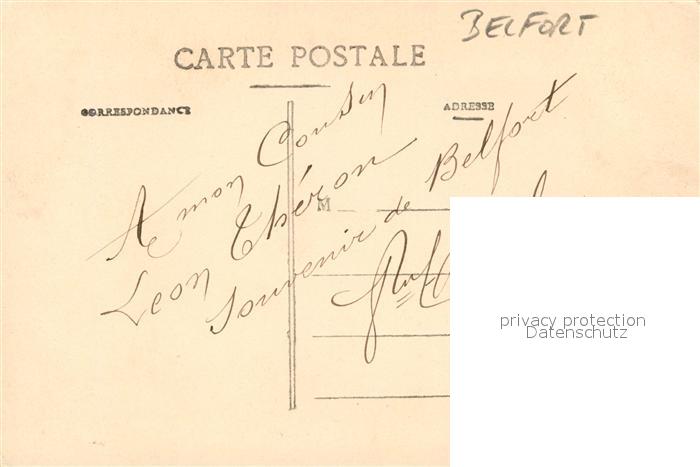 BELFORT
CARTE POSTALE
CORRESPONDANCE
ADRESSE
A mon Cousin
Leon Théron
Souvenir de Belfort
M
privacy protection
Datenschutz